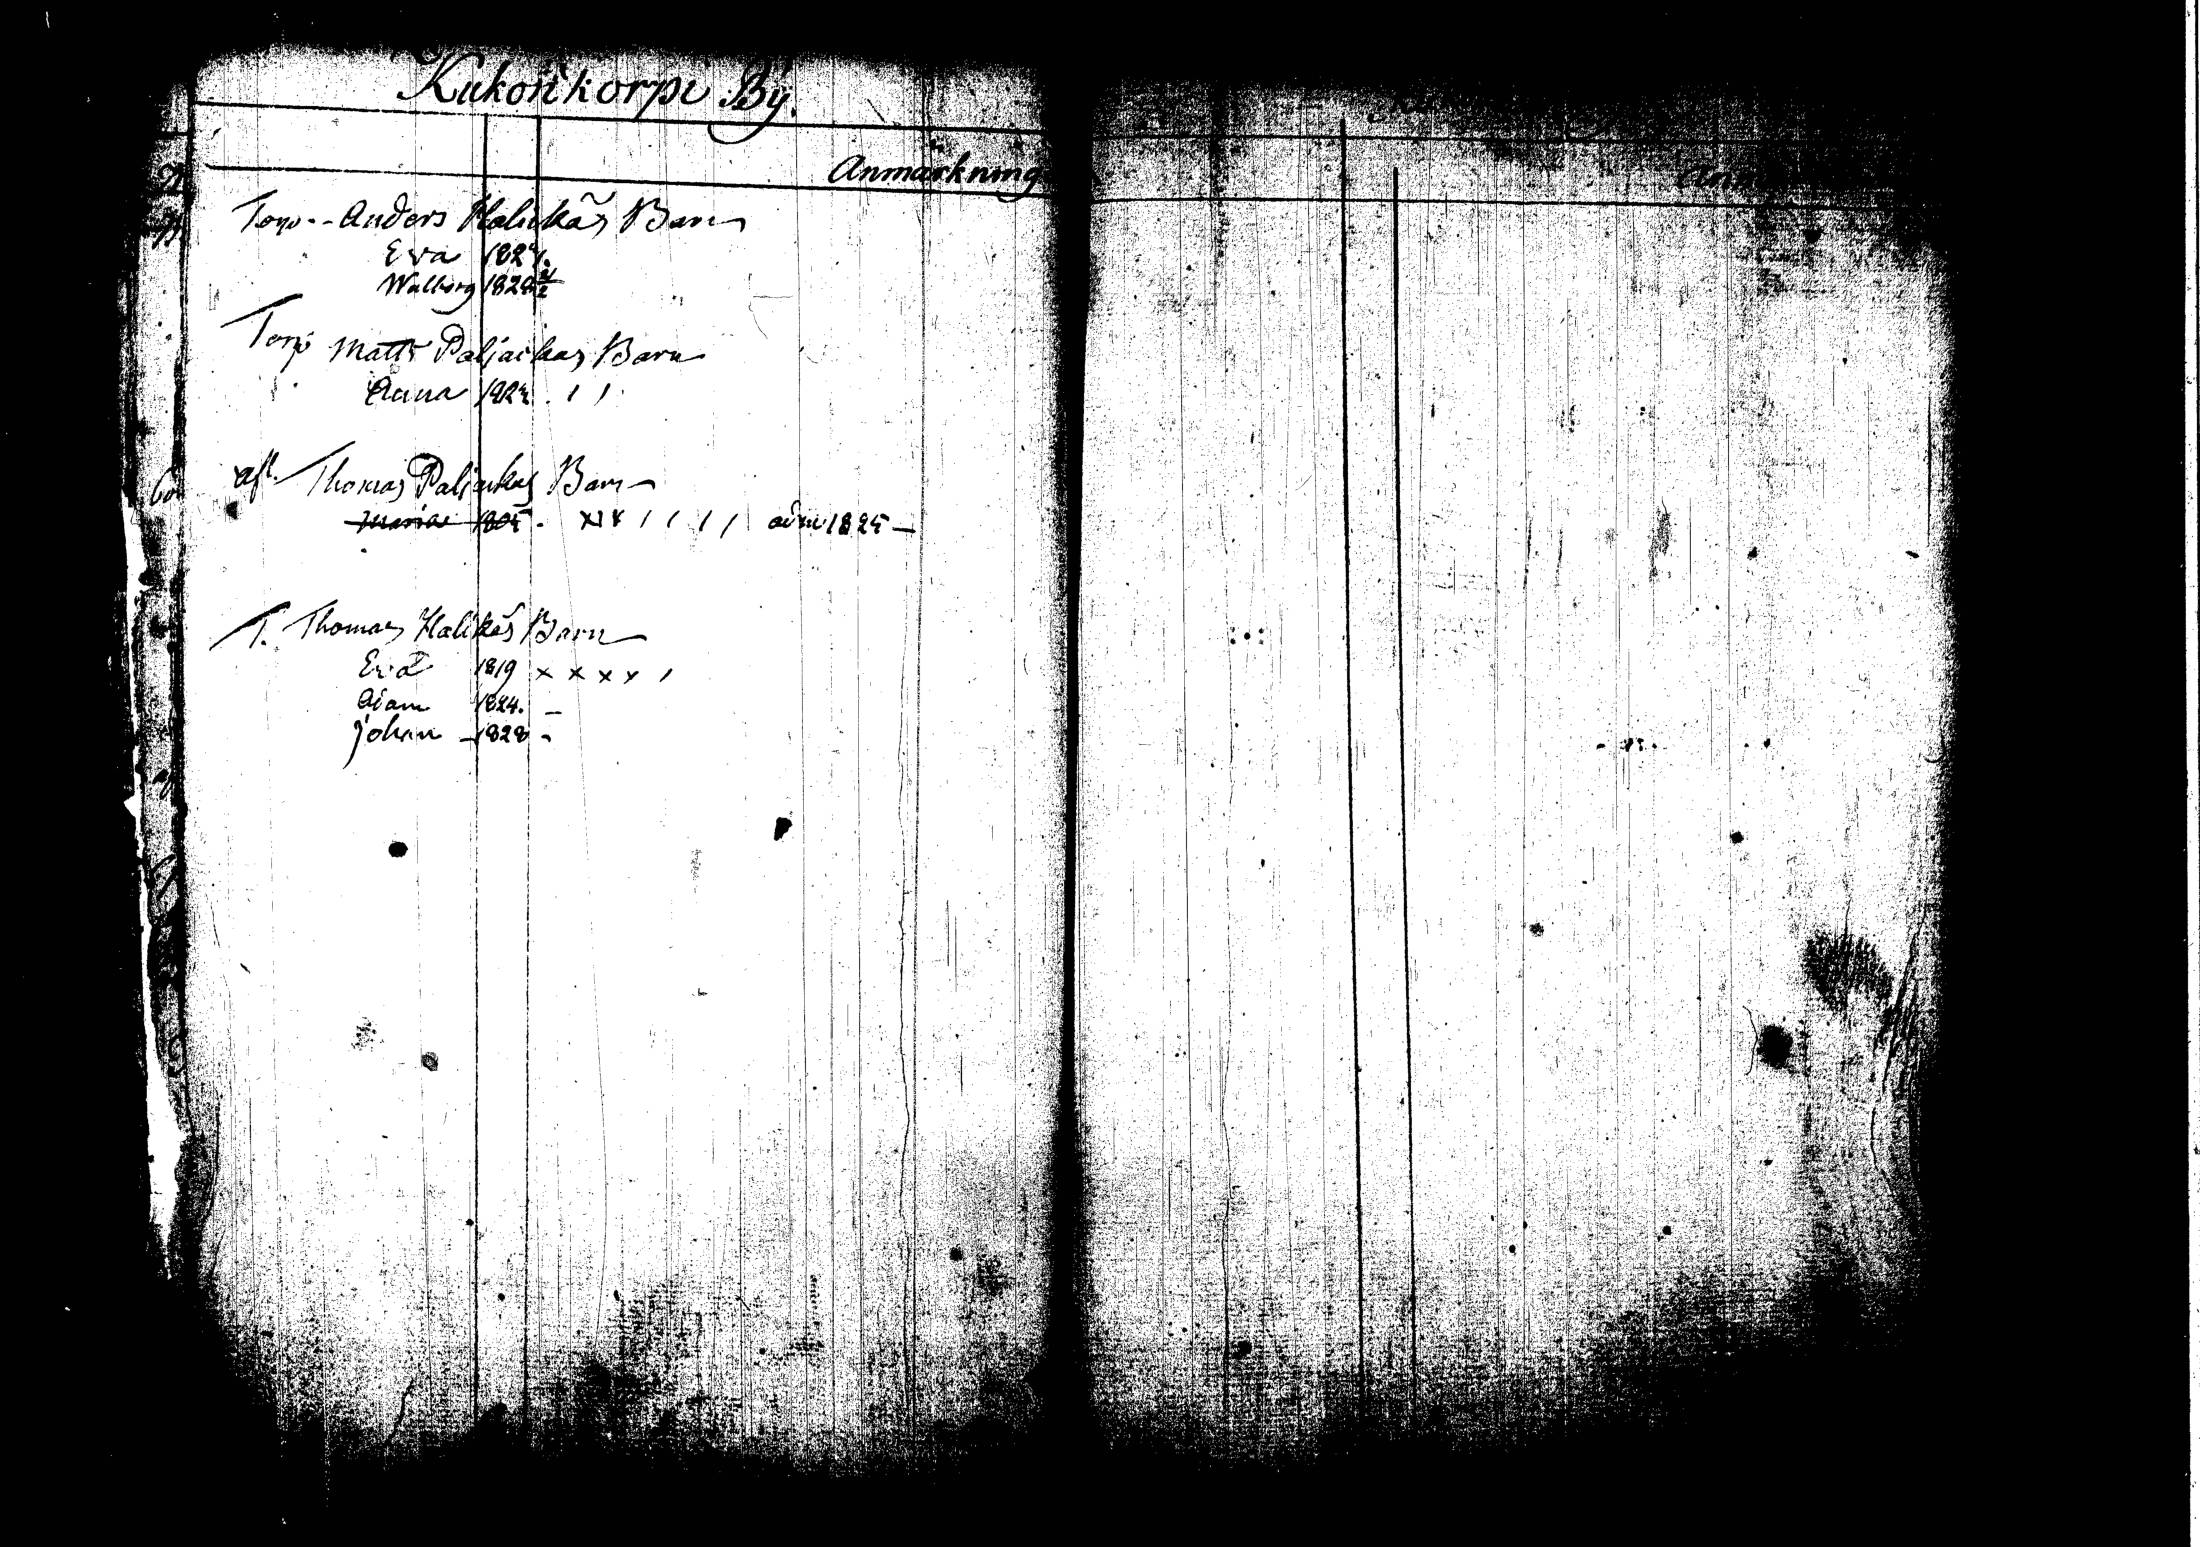 Kukonkorpi By.
Anmärkning
Torp. Anders Halikas Barn
Eva 1824.
Walborg 1828
Torp Matts Paljackas Barn
Anna 182
afl. Thomas Paljackas Barn
Maria 1805. x x x / / / / 1825
T. Thomas Halikas Barn
Eva 1819 x x x x /
Adam 1824. –
Johan – 1828 –